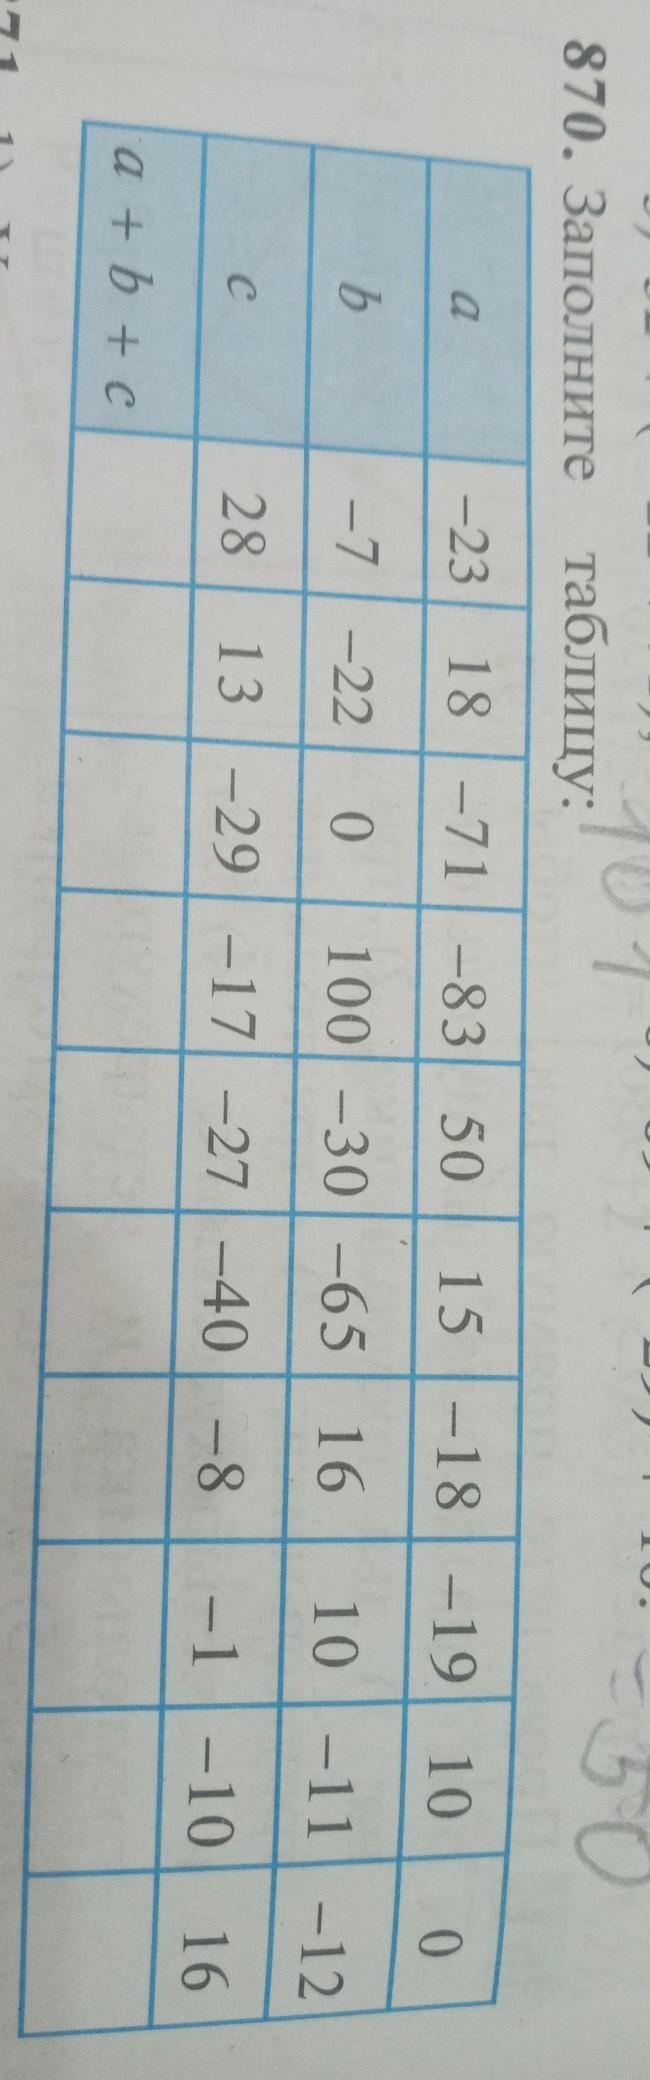 870. Заполните таблицу:
a −23 18 −71 −83 50 15 −18 −19 10 0
b −7 −22 0 100 −30 −65 16 10 −11 −12
c 28 13 −29 −17 −27 −40 −8 −1 −10 16
a + b + c